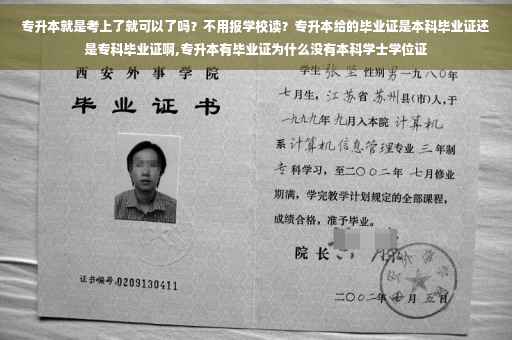 专升本就是考上了就可以了吗？不用报学校读？专升本给的毕业证是本科毕业证还
是专科毕业证啊,专升本有毕业证为什么没有本科学士学位证
西安外事学院
毕业证书
证书编号:0209130411
学生 张坚 性别男一九八〇年
七月生，江苏省苏州县(市)人,于
一九九九年九月入本院 计算机
系计算机信息管理专业 三年制
专科学习，至二〇〇二年 七月修业
期满，学完教学计划规定的全部课程，
成绩合格，准予毕业。
院长
二〇〇二年 月五日